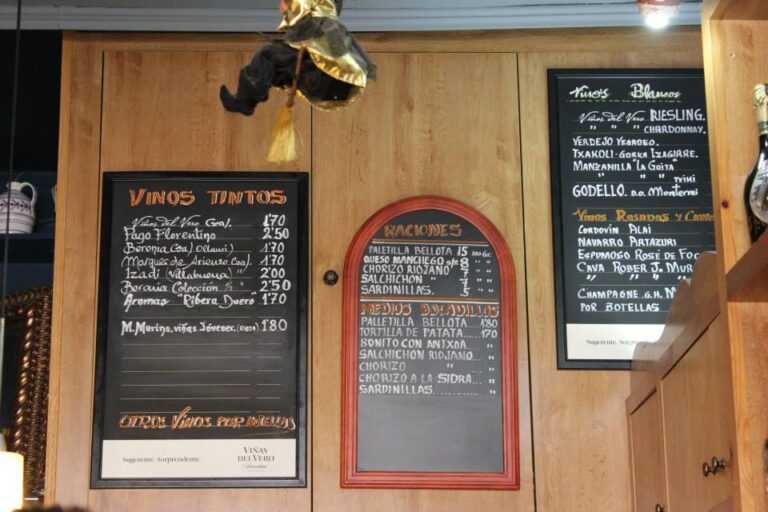 VINOS TINTOS
Viñas del Vero Coal. 1'70
Pago Florentino 2'50
Beronia Coal (Ollauri) 1'70
Marques de Arienzo Coal. 1'70
Izadi (Villabuena) " 2'00
Beronia Colección ½ " 2'50
Aromas "Ribera Duero" 1'70
M. Merino, viñas Jóvenes. 1'80
OTROS VINOS POR BOTELLAS
Sugerente. Sorprendente.
VIÑAS DEL VERO
Somontano
RACIONES
PALETILLA BELLOTA 15 100 Gr.
QUESO MANCHEGO 8 "
CHORIZO RIOJANO 7 "
SALCHICHON " 7 "
SARDINILLAS. 5 "
MEDIOS BOCADILLOS
PALLETILLA BELLOTA 1'80
TORTILLA DE PATATA.. 1'70
BONITO CON ANTXOA.. "
SALCHICHON RIOJANO.. "
CHORIZO " "
CHORIZO A LA SIDRA... "
SARDINILLAS... "
Vinos Blancos
Viñas del Vero RIESLING.
" " " CHARDONNAY.
VERDEJO
TXAKOLI - GORKA IZAGIRRE.
MANZANILLA "LA GOITA"
" " TXIKI
GODELLO. D.O. Monterrei
Vinos Rosados y
CORDOVIN ALAI
NAVARRO ARTAZURI
ESPUMOSO ROSE DE
CAVA ROBER J. MUR
CHAMPAGNE G.H. M
POR BOTELLAS
Sugerente. Surpren